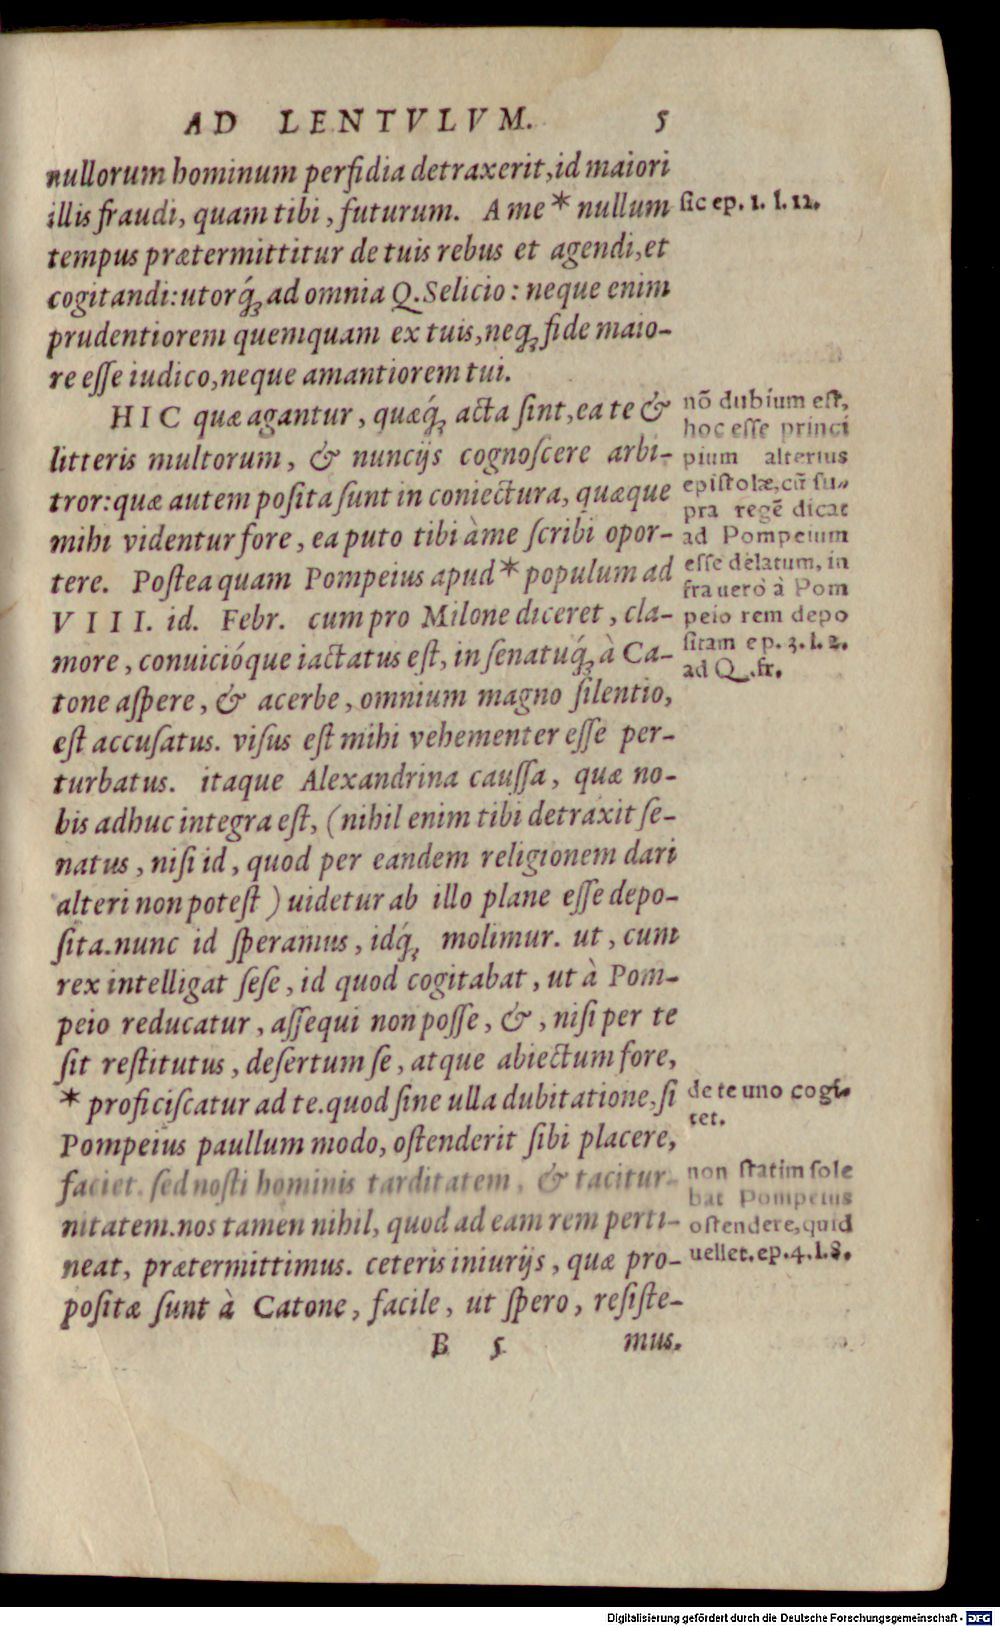 AD LENTVLVM. 5
nullorum hominum perfidia detraxerit, id maiori
illis fraudi, quam tibi, futurum. A me * nullum
tempus prætermittitur de tuis rebus et agendi, et
cogitandi: utorq́; ad omnia Q. Selicio: neque enim
prudentiorem quemquam ex tuis, neq; fide maio-
re esse iudico, neque amantiorem tui.
HIC quæ agantur, quæq́; acta sint, ea te &
litteris multorum, & nuncijs cognoscere arbi-
tror: quæ autem posita sunt in coniectura, quæque
mihi videntur fore, ea puto tibi à me scribi opor-
tere. Postea quam Pompeius apud * populum ad
VIII. id. Febr. cum pro Milone diceret, cla-
more, conuicióque iactatus est, in senatuq́; à Ca-
tone aspere, & acerbe, omnium magno silentio,
est accusatus. visus est mihi vehementer esse per-
turbatus. itaque Alexandrina caussa, quæ no-
bis adhuc integra est, (nihil enim tibi detraxit se-
natus, nisi id, quod per eandem religionem dari
alteri non potest) uidetur ab illo plane esse depo-
sita. nunc id speramus, idq́; molimur. ut, cum
rex intelligat sese, id quod cogitabat, ut à Pom-
peio reducatur, assequi non posse, &, nisi per te
sit restitutus, desertum se, atque abiectum fore,
* proficiscatur ad te. quod sine ulla dubitatione, si
Pompeius paullum modo, ostenderit sibi placere,
faciet. sed nosti hominis tarditatem, & tacitur-
nitatem. nos tamen nihil, quod ad eam rem perti-
neat, prætermittimus. ceteris iniurijs, quæ pro-
positæ sunt à Catone, facile, ut spero, resiste-
B 5 mus.
sic ep. 1. l. 12.
nō dubium est,
hoc esse princi
pium alterius
epistolæ, cū su-
pra regē dicat
ad Pompeium
esse delatum, in
fra uero à Pom
peio rem depo
sitam ep. 3. l. 2.
ad Q. fr.
de te uno cogi-
tet.
non statim sole
bat Pompeius
ostendere, quid
uellet. ep. 4. l. 8.
Digitalisierung gefördert durch die Deutsche Forschungsgemeinschaft - DFG